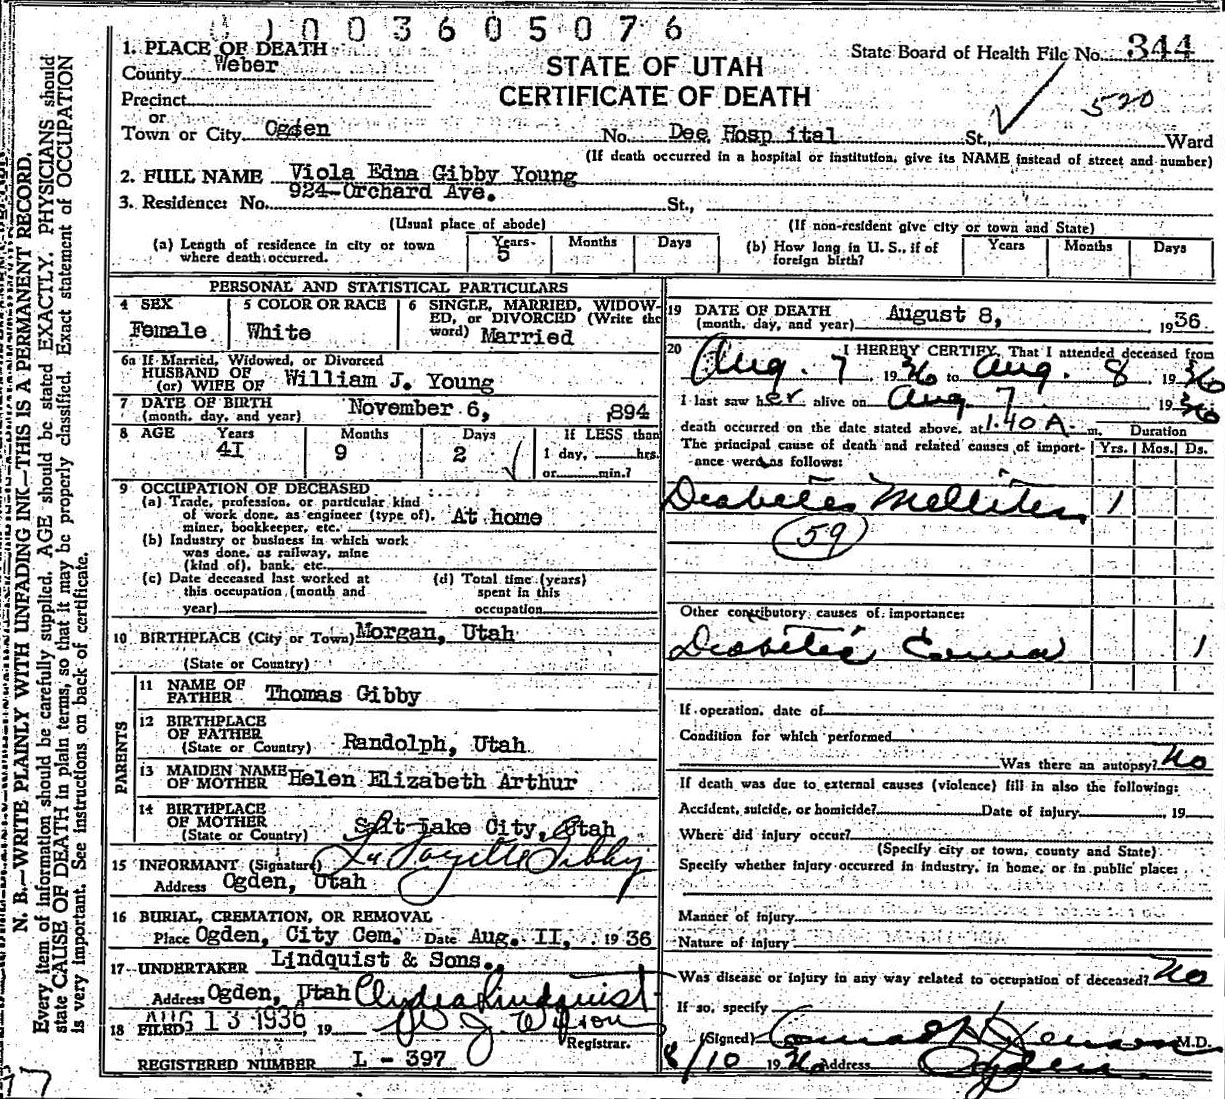 0 1 0 0 3 6 0 5 0 7 6
N. B.—WRITE PLAINLY WITH UNFADING INK—THIS IS A PERMANENT RECORD.
Every item of information should be carefully supplied. AGE should be stated EXACTLY. PHYSICIANS should
state CAUSE OF DEATH in plain terms, so that it may be properly classified. Exact statement of OCCUPATION
is very important. See instructions on back of certificate.
State Board of Health File No. 344
520
STATE OF UTAH
CERTIFICATE OF DEATH
1. PLACE OF DEATH
County Weber
Precinct
or
Town or City Ogden No. Dee Hospital St., Ward
(If death occurred in a hospital or institution, give its NAME instead of street and number)
2. FULL NAME Viola Edna Gibby Young
3. Residence: No. 924-Orchard Ave. St.,
(Usual place of abode) (If non-resident give city or town and State)
(a) Length of residence in city or town where death occurred. Years- 5 Months Days
(b) How long in U. S., if of foreign birth? Years Months Days
PERSONAL AND STATISTICAL PARTICULARS
4 SEX Female
5 COLOR OR RACE White
6 SINGLE, MARRIED, WIDOW-
ED, or DIVORCED (Write the
word) Married
6a If Married, Widowed, or Divorced
HUSBAND OF
(or) WIFE OF William J. Young
7 DATE OF BIRTH
(month, day, and year) November 6, 894
8 AGE Years 4I Months 9 Days 2
If LESS than
1 day, hrs.
or min.?
9 OCCUPATION OF DECEASED
(a) Trade, profession, or particular kind
of work done, as engineer (type of),
miner, bookkeeper, etc. At home
(b) Industry or business in which work
was done, as railway, mine
(kind of), bank, etc.
(c) Date deceased last worked at
this occupation (month and
year)
(d) Total time (years)
spent in this
occupation
10 BIRTHPLACE (City or Town) Morgan, Utah
(State or Country)
PARENTS
11 NAME OF
FATHER Thomas Gibby
12 BIRTHPLACE
OF FATHER
(State or Country) Randolph, Utah
13 MAIDEN NAME
OF MOTHER Helen Elizabeth Arthur
14 BIRTHPLACE
OF MOTHER
(State or Country) Salt Lake City, Utah
15 INFORMANT (Signature) LaFayette Gibby
Address Ogden, Utah
16 BURIAL, CREMATION, OR REMOVAL
Place Ogden, City Cem. Date Aug. II, 1936
17 UNDERTAKER Lindquist & Sons.
Address Ogden, Utah Clyde Lindquist
18 FILED AUG 13 1936, 19 W. J. Wilson
Registrar.
REGISTERED NUMBER L - 397
19 DATE OF DEATH
(month, day, and year) August 8, 1936
20 I HEREBY CERTIFY, That I attended deceased from
Aug. 7 1936 to Aug. 8, 1936
I last saw her alive on Aug 7 1936
death occurred on the date stated above, at 1.40 A. m. Duration
The principal cause of death and related causes of import-
ance were as follows: Yrs. Mos. Ds.
Diabetes Mellitus 1
59
Other contributory causes of importance:
Diabetic Coma 1
If operation, date of
Condition for which performed
Was there an autopsy? No
If death was due to external causes (violence) fill in also the following:
Accident, suicide, or homicide? Date of injury , 19
Where did injury occur?
(Specify city or town, county and State)
Specify whether injury occurred in industry, in home, or in public place:
Manner of injury
Nature of injury
Was disease or injury in any way related to occupation of deceased? No
If so, specify
(Signed) Conrad H Jensen M.D.
8/10 1936 Address Ogden.